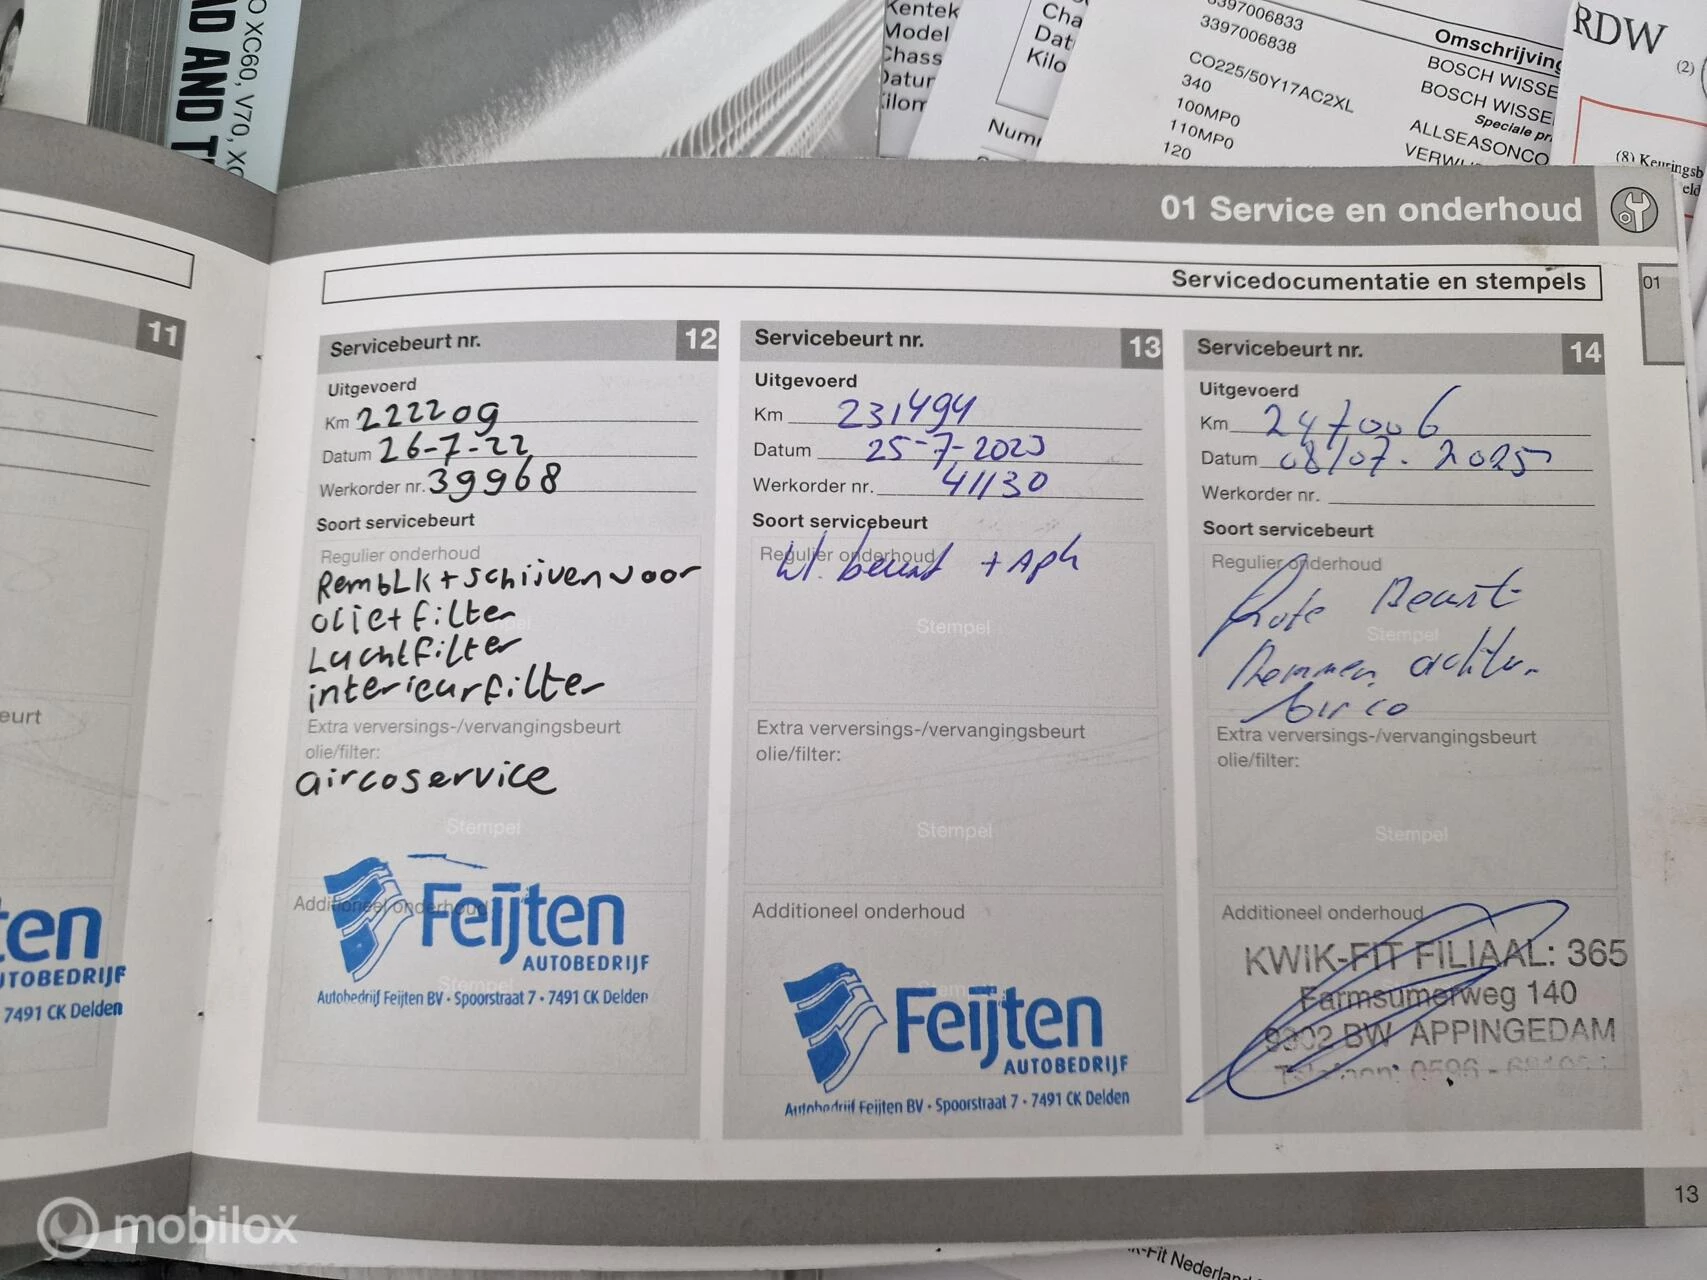 O XC60, V70, XC
AD AND T
Kentek
Model
Chass
Datum
Kilom
Cha
Dat
Kilo
Numm
3397006833
3397006838
CO225/50Y17AC2XL
340
100MP0
110MP0
120
Omschrijving
BOSCH WISSE
BOSCH WISSE
Speciale pri
ALLSEASONCO
VERWIJ
RDW
(2)
(8) Keuringsb
eld
01 Service en onderhoud
Servicedocumentatie en stempels
01
11
eurt
ten
UTOBEDRIJF
7491 CK Delden
Servicebeurt nr. 12
Uitgevoerd
Km 222209
Datum 26-7-22
Werkorder nr. 39968
Soort servicebeurt
Regulier onderhoud
RembLk + schijven voor
olie + filter
Luchtfilter
interieurfilter
Extra verversings-/vervangingsbeurt
olie/filter:
aircoservice
Stempel
Additioneel onderhoud
Feijten
AUTOBEDRIJF
Stempel
Autobedrijf Feijten BV • Spoorstraat 7 • 7491 CK Delden
Servicebeurt nr. 13
Uitgevoerd
Km 231494
Datum 25-7-2023
Werkorder nr. 41130
Soort servicebeurt
Regulier onderhoud
kl. beurt + Apk
Stempel
Extra verversings-/vervangingsbeurt
olie/filter:
Stempel
Additioneel onderhoud
Feijten
AUTOBEDRIJF
Autobedrijf Feijten BV • Spoorstraat 7 • 7491 CK Delden
Servicebeurt nr. 14
Uitgevoerd
Km 247006
Datum 08/07.2025
Werkorder nr.
Soort servicebeurt
Regulier onderhoud
Grote Beurt
Stempel
Remmen achter.
Airco
Extra verversings-/vervangingsbeurt
olie/filter:
Stempel
Additioneel onderhoud
KWIK-FIT FILIAAL: 365
Farmsumerweg 140
9902 BW APPINGEDAM
Telefoon: 0596 -
13
k-Fit Nederland
mobilox